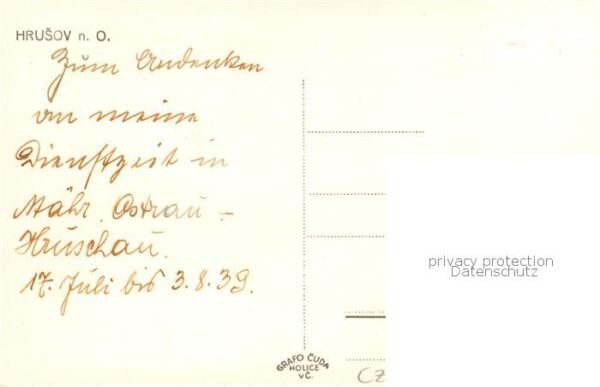 HRUŠOV n. O.
Zum Andenken
an meine
Dienstzeit in
Mähr. Ostrau -
Hruschau.
17. Juli bis 3.8.39.
privacy protection
Datenschutz
GRAFO ČUDA
HOLICE
VČ.
CZ